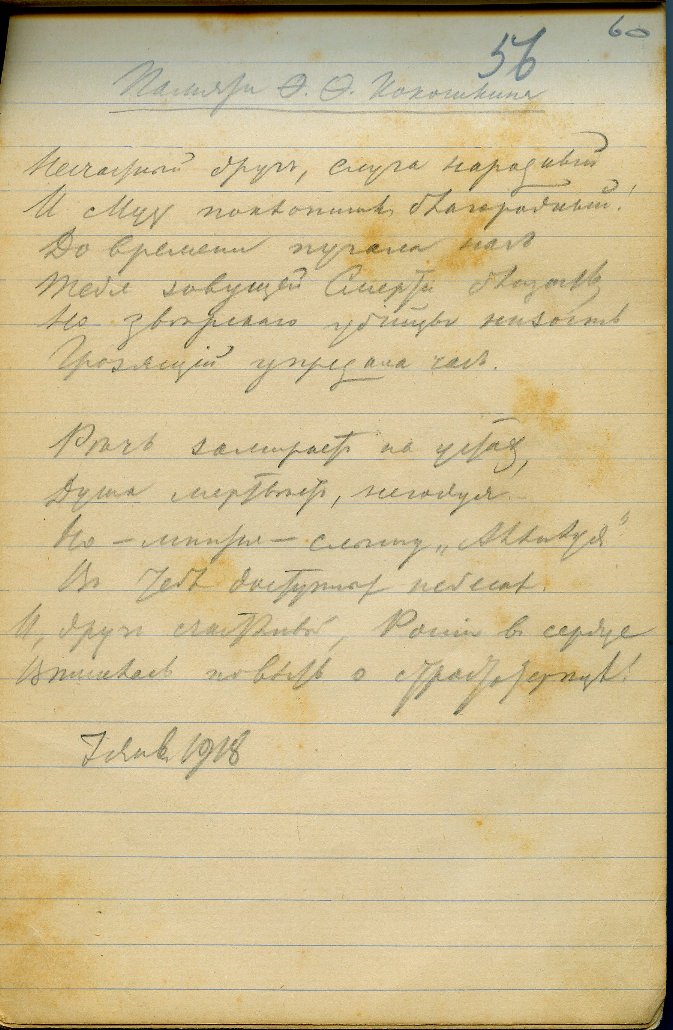 60
56
Памяти Ѳ. Ѳ. Кокошкина
Несчастный другъ, слуга народный
И Музъ поклонникъ благородный!
До времени пугала насъ
Тебя зовущей Смерти близость
Но звѣрская убійцы низость
Грозящій упредила часъ.
Рѣчь замираетъ на устахъ,
Душа мертвѣетъ, негодуя.
Но – мнится – слышу „Аллилуія“
Въ тебѣ доступныхъ небесахъ.
И, другъ счастливый, Россіи въ сердце
Впишись повѣсть о страстотерпцѣ!
7 Янв. 1918